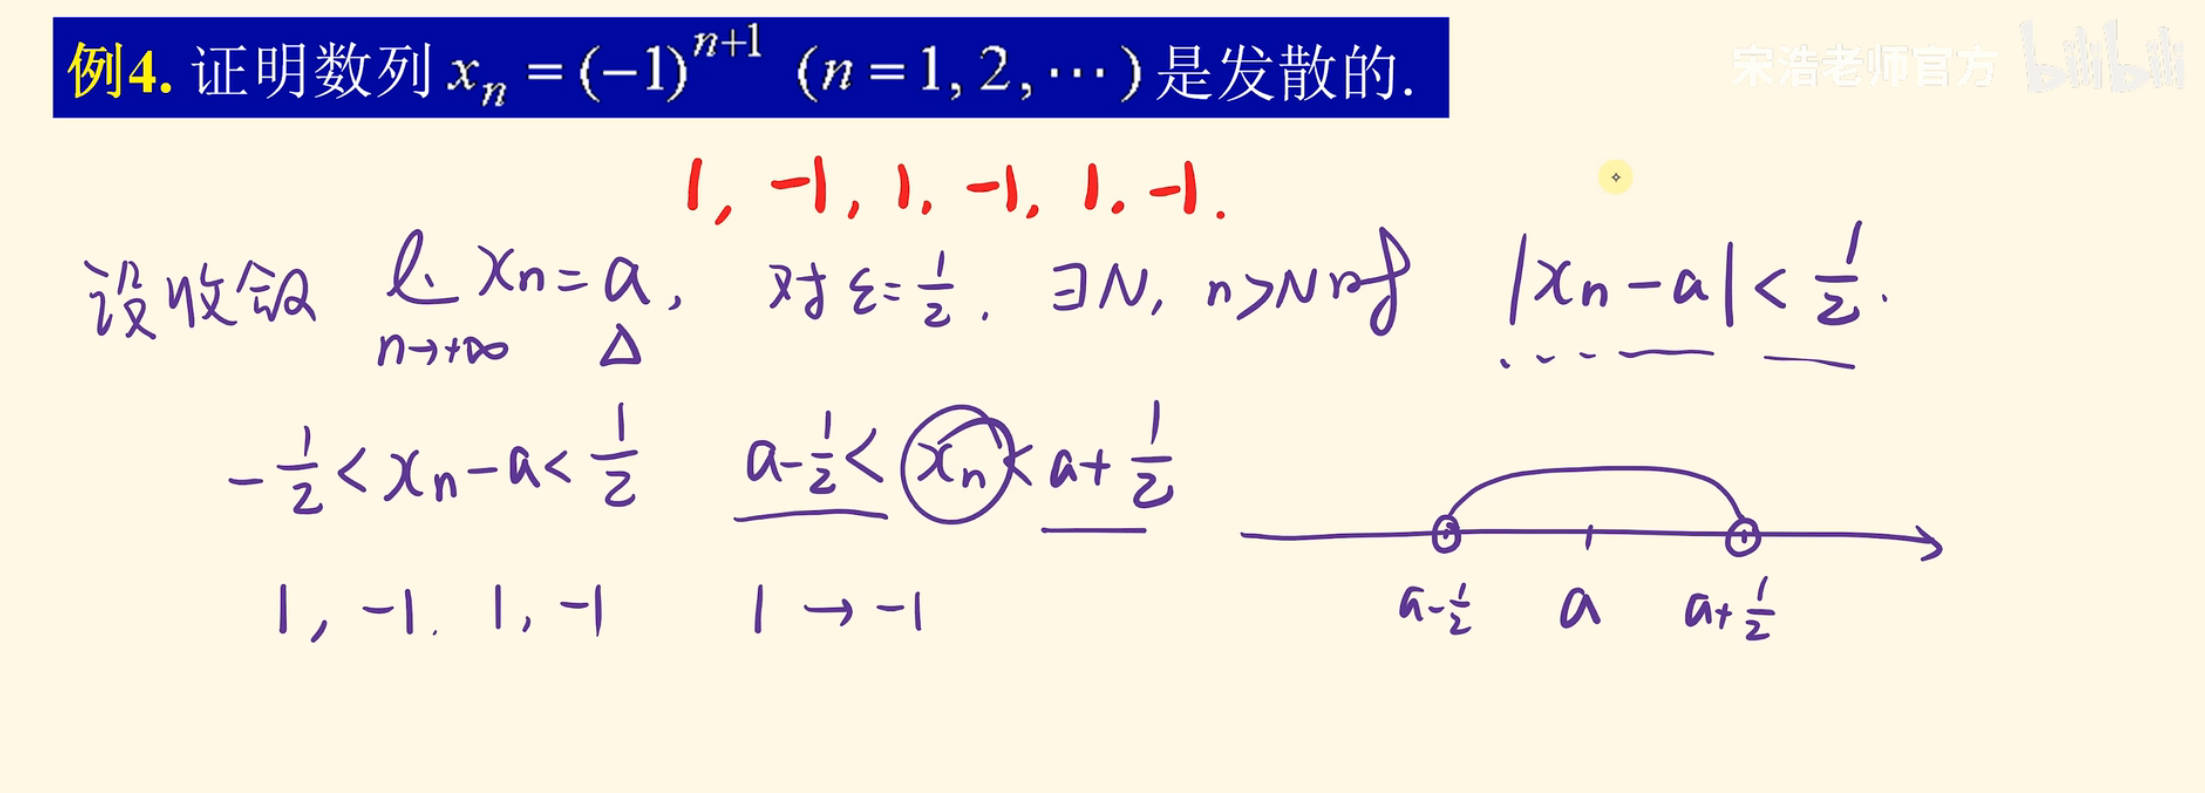 例4. 证明数列 xₙ = (−1)ⁿ⁺¹ (n = 1, 2, ⋯) 是发散的.
宋浩老师官方 bilibili
1, -1, 1, -1, 1, -1.
设收敛 lim xₙ = a, 对 ε = 1/2, ∃N, n>N时 |xₙ - a| < 1/2.
n→+∞ △
-1/2 < xₙ - a < 1/2 a - 1/2 < xₙ < a + 1/2
1, -1, 1, -1 1 → -1
a - 1/2 a a + 1/2